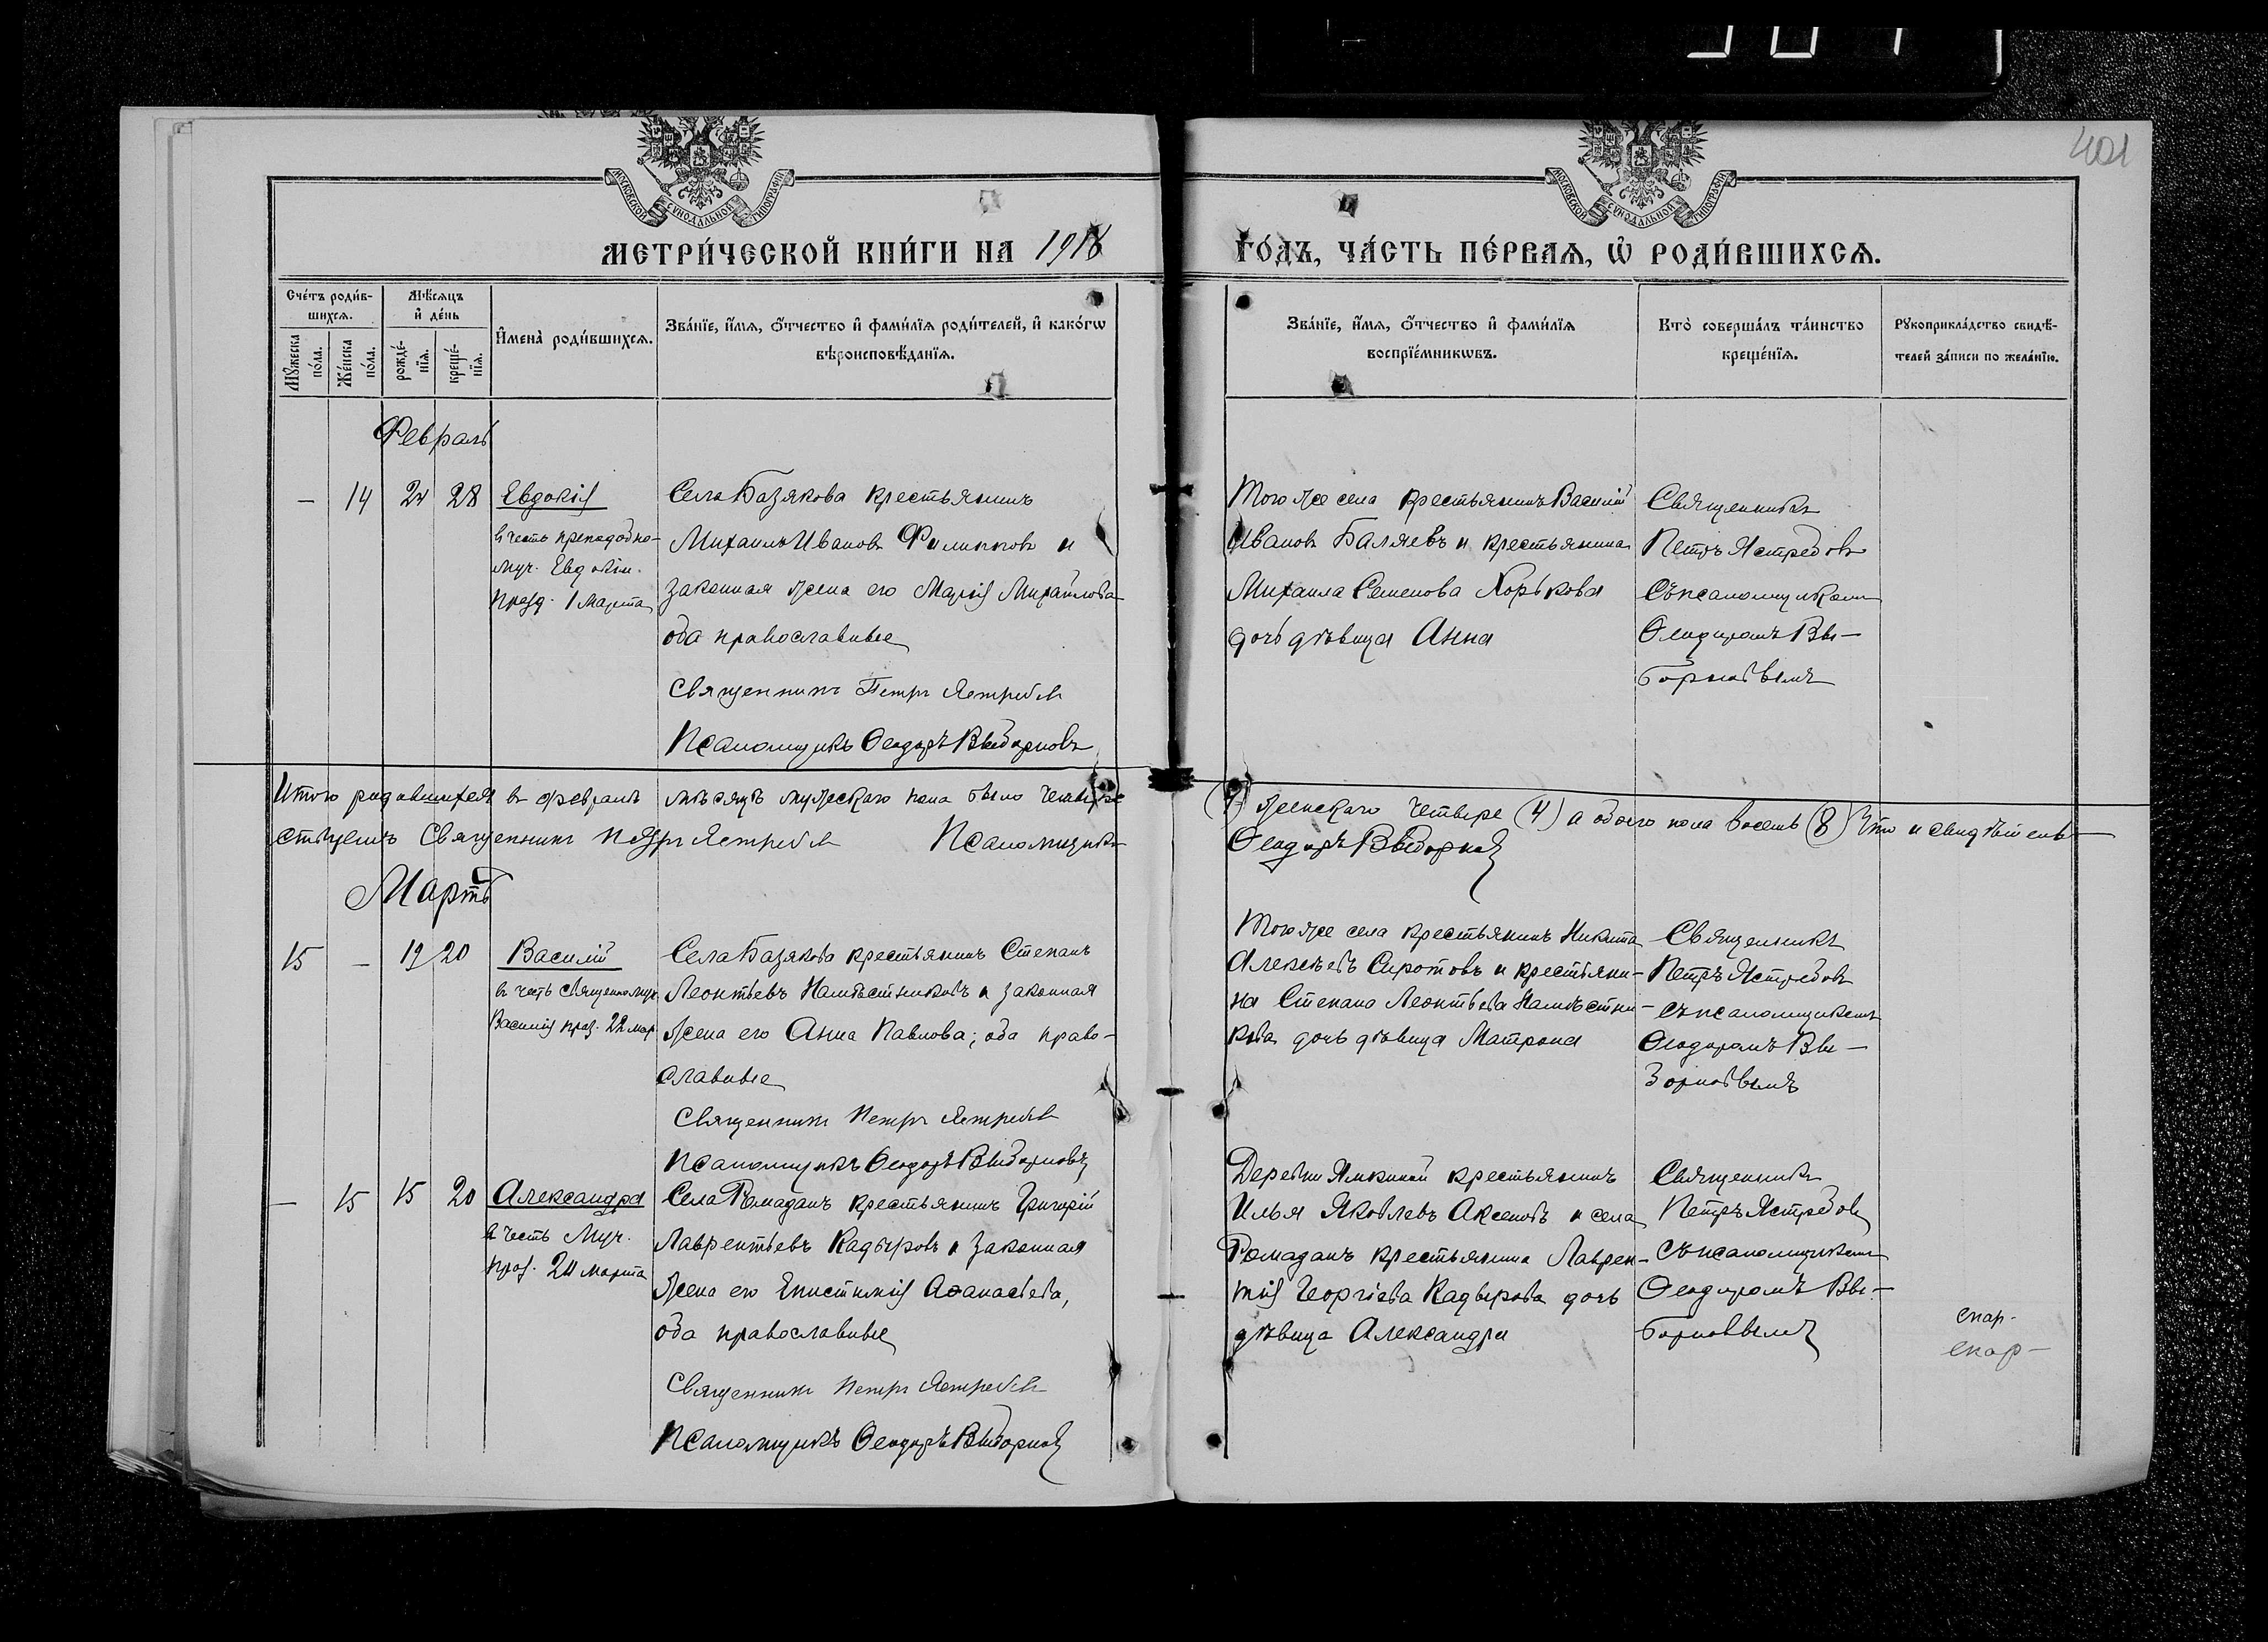 401
МОСКОВСКОЙ СѴНОДАЛЬНОЙ ТИПОГРАФІИ
МОСКОВСКОЙ СѴНОДАЛЬНОЙ ТИПОГРАФІИ
МЕТРИ́ЧЕСКОЙ КНИ́ГИ НА 1918 ГО́ДЪ, ЧА́СТЬ ПЕ́РВАѦ, Ѡ҆ РОДИ́ВШИХСѦ.
Сче́тъ роди́в-
шихсѧ.
Мꙋ́жеска по́ла.
Же́нска по́ла.
Мѣ́сѧцъ
и҆ де́нь
рожде́-
нїѧ.
креще́-
нїѧ.
И҆мена̀ роди́вшихсѧ.
Зва́нїе, и҆́мѧ, ѻ҆́тчество и҆ фами́лїѧ роди́телей, и҆ како́гѡ
вѣроисповѣ́данїѧ.
Зва́нїе, и҆́мѧ, ѻ҆́тчество и҆ фами́лїѧ
воспрїе́мникѡвъ.
Кто̀ соверша́лъ та́инство
креще́нїѧ.
Рꙋкоприкла́дство свидѣ́-
телей за́писи по жела́нїю.
Февраль
— 14 24 28 Евдокія
в честь преподобно-
муч. Евдокіи.
празд. 1 марта
Села Базякова крестьянинъ
Михаилъ Ивановъ Филипповъ и
законная жена его Марія Михайлова
оба православные
Священникъ Петръ Ястребовъ
Псаломщикъ Ѳеодоръ Выборновъ
Того же села крестьянинъ Василій
Ивановъ Баляевъ и крестьянина
Михаила Семенова Хорькова
дочь дѣвица Анна
Священникъ
Петръ Ястребовъ
Съ псаломщикомъ
Ѳеодоромъ Вы-
борновымъ
Итого родившихся въ февралѣ мѣсяцѣ мужескаго пола было четыре (4) женскаго четыре (4) а обоего пола восемь (8) Что и свидѣтель-
ствуемъ Священникъ Петръ Ястребовъ Псаломщикъ Ѳеодоръ Выборновъ
Мартъ
15 — 19 20 Василій
в честь священномуч.
Василія праз. 22 мар.
Села Базякова крестьянинъ Степанъ
Леонтьевъ Намѣстниковъ и законная
жена его Анна Павлова; оба право-
славные
Священникъ Петръ Ястребовъ
Псаломщикъ Ѳеодоръ Выборновъ
Того же села крестьянинъ Никита
Алексѣевъ Сиротовъ и крестьяни-
на Степана Леонтьева Намѣстни-
кова дочь дѣвица Матрона
Священникъ
Петръ Ястребовъ
съ псаломщикомъ
Ѳеодоромъ Вы-
борновымъ
— 15 15 20 Александра
в честь Муч.
праз. 20 марта
Села Ромаданъ крестьянинъ Григорій
Лаврентьевъ Кадыровъ и законная
жена его Епистимія Аѳанасьева,
оба православные
Священникъ Петръ Ястребовъ
Псаломщикъ Ѳеодоръ Выборновъ
Деревни Ямкиной крестьянинъ
Илья Яковлевъ Аксеновъ и села
Ромаданъ крестьянина Лаврен-
тія Георгіева Кадырова дочь
дѣвица Александра
Священникъ
Петръ Ястребовъ
съ псаломщикомъ
Ѳеодоромъ Вы-
борновымъ